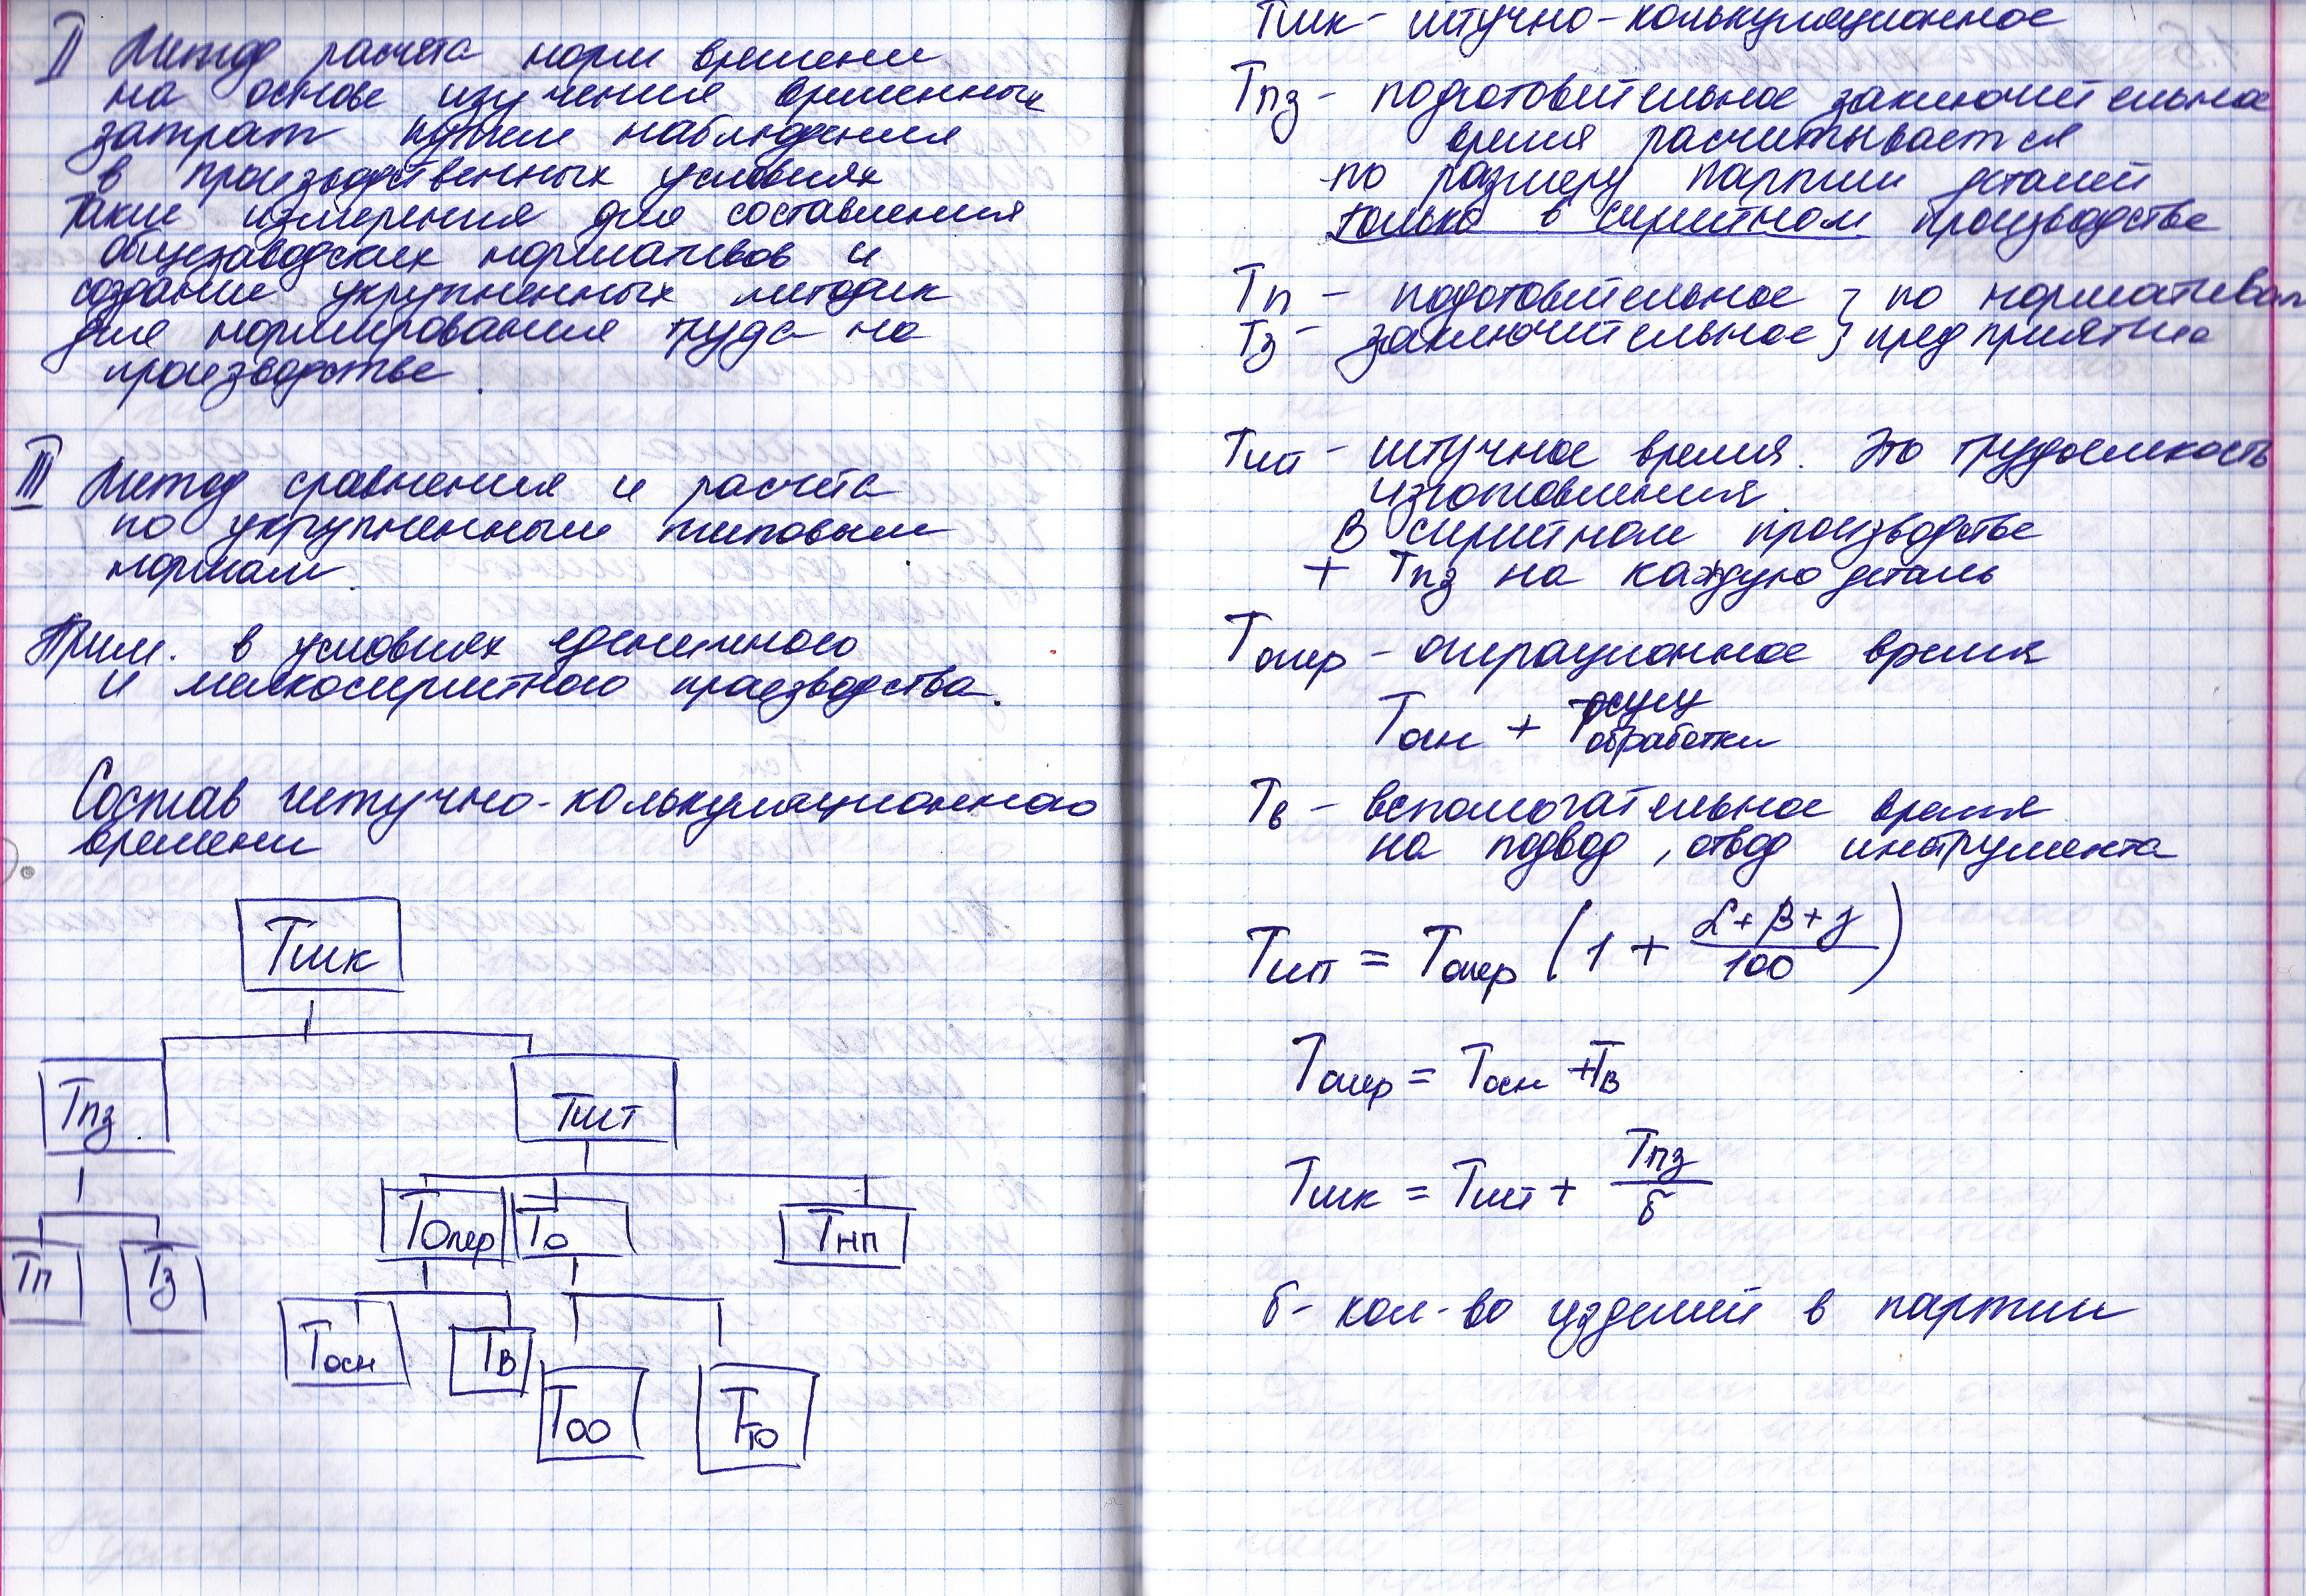 II Метод расчёта норм времени
на основе изучения временных
затрат путем наблюдения
в производственных условиях
Такие измерения для составления
общезаводских нормативов и
создание укрупненных методик
для нормирования труда на
производстве.
III Метод сравнения и расчёта
по укрупненным типовым
нормам.
Прим. в условиях единичного
и мелкосерийного производства.
Состав штучно-калькуляционного
времени
Тшк
Тпз
Тшт
Топер
То
Тнп
Тп
Тз
Тосн
Тв
Тоо
Тто
Тшк - штучно-калькуляционное
Тпз - подготовительное заключительное
время расчитывается
по размеру партии деталей
только в серийном производстве
Тп - подготовительное } по нормативам
Тз - заключительное } предприятие
Тшт - штучное время. Это трудоемкость
изготовления
В серийном производстве
+ Тпз на каждую деталь
Топер - операционное время
Тосн +
обработки
Тв - вспомогательное время
на подвод, отвод инструмента
Тшт = Топер (1 + (α+β+γ)/100)
Топер = Тосн + Тв
Тшк = Тшт + Тпз/б
б - кол-во изделий в партии